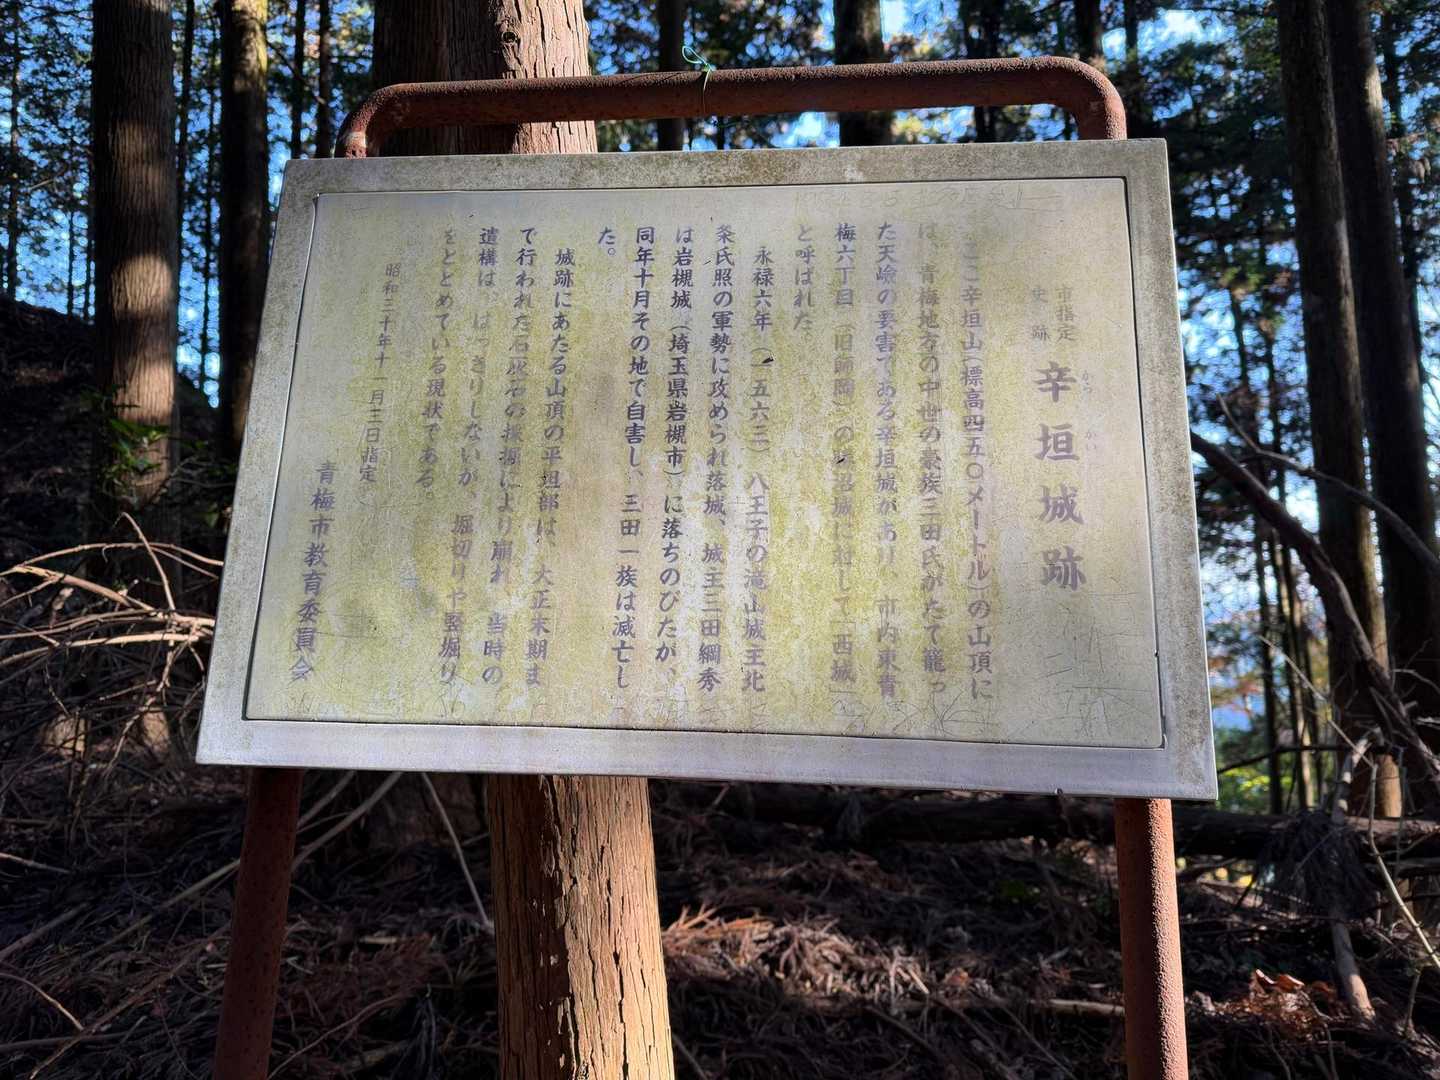 市指定
史跡
辛垣城跡
から
かい
ここ辛垣山(標高四五〇メートル)の山頂に
は、青梅地方の中世の豪族三田氏がたて籠っ
た天嶮の要害である辛垣城があり、市内東青
梅六丁目(旧師岡)の勝沼城に対して「西城」
と呼ばれた。
永禄六年(一五六三)八王子の滝山城主北
条氏照の軍勢に攻められ落城、城主三田綱秀
は岩槻城(埼玉県岩槻市)に落ちのびたが、
同年十月その地で自害し、三田一族は滅亡し
た。
城跡にあたる山頂の平坦部は、大正末期ま
で行われた石灰石の採掘により崩れ、当時の
遺構は、はっきりしないが、堀切りや竪堀り
をとどめている現状である。
昭和三十年十一月三日指定
青梅市教育委員会